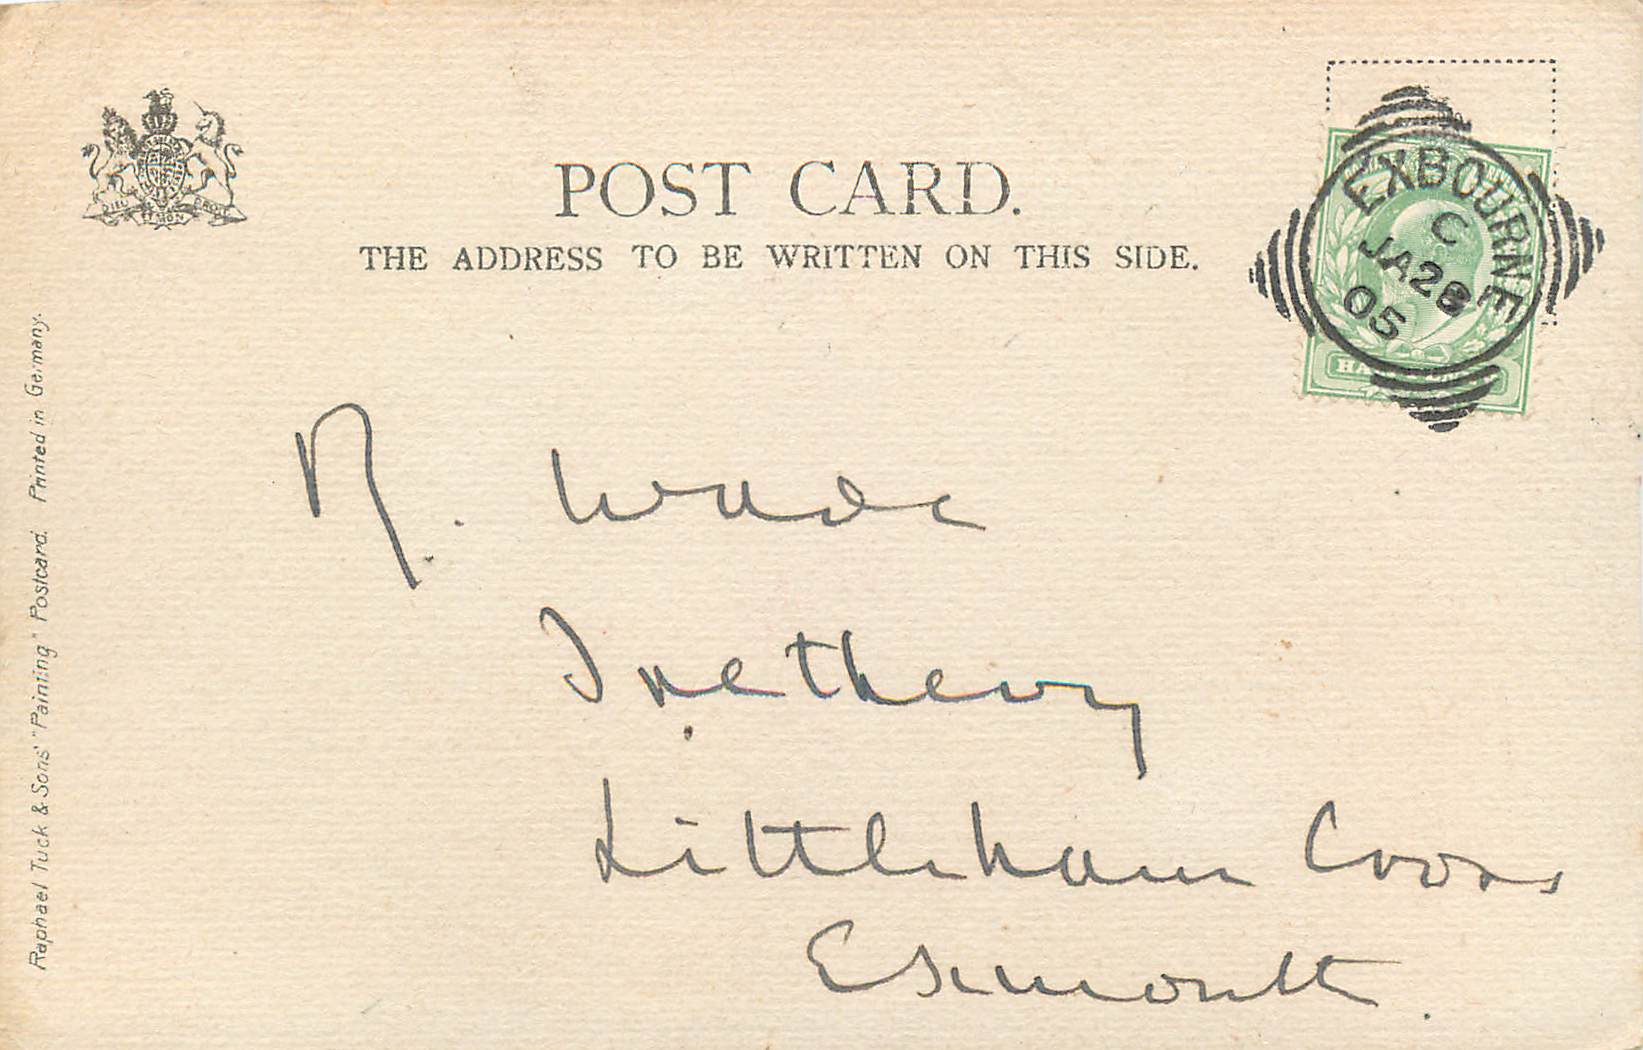 POST CARD.
THE ADDRESS TO BE WRITTEN ON THIS SIDE.
EXBOURNE
C
JA 28
05
R. Wade
Littleham Cross
Exmouth
Raphael Tuck & Sons' "Painting" Postcard. Printed in Germany.